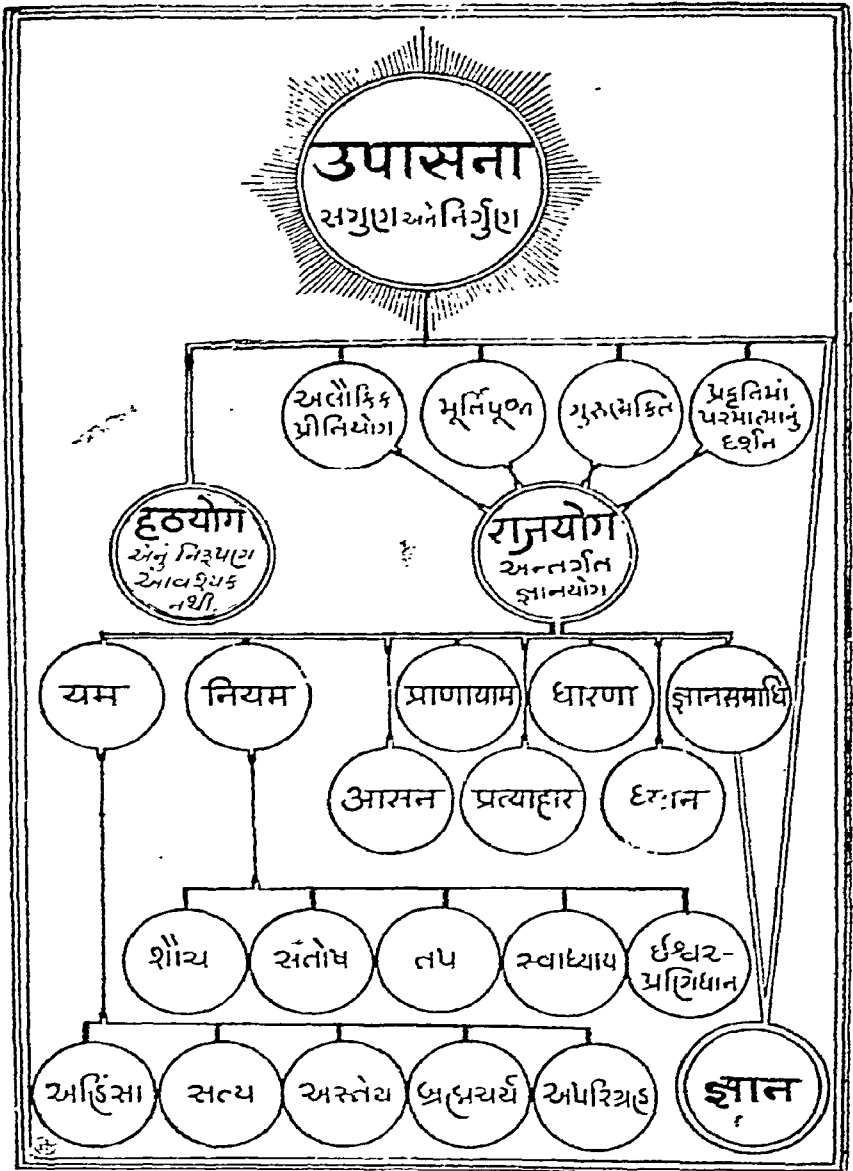 उपासना
સગુણ અને નિર્ગુણ
અલૌકિક
પ્રીતિયોગ
મૂર્તિપૂજા
ગુરુભક્તિ
પ્રકૃતિમાં
પરમાત્માનું
દર્શન
हठयोग
એનું નિરૂપણ
આવશ્યક
નથી.
राजयोग
અન્તર્ગત
જ્ઞાનયોગ
यम
नियम
प्राणायाम
धारणा
ज्ञानसमाधि
आसन
प्रत्याहार
ध्यान
શૌચ
સંતોષ
તપ
સ્વાધ્યાય
ઈશ્વર-
પ્રણિધાન
અહિંસા
સત્ય
અસ્તેય
બ્રહ્મચર્ય
અપરિગ્રહ
ज्ञान